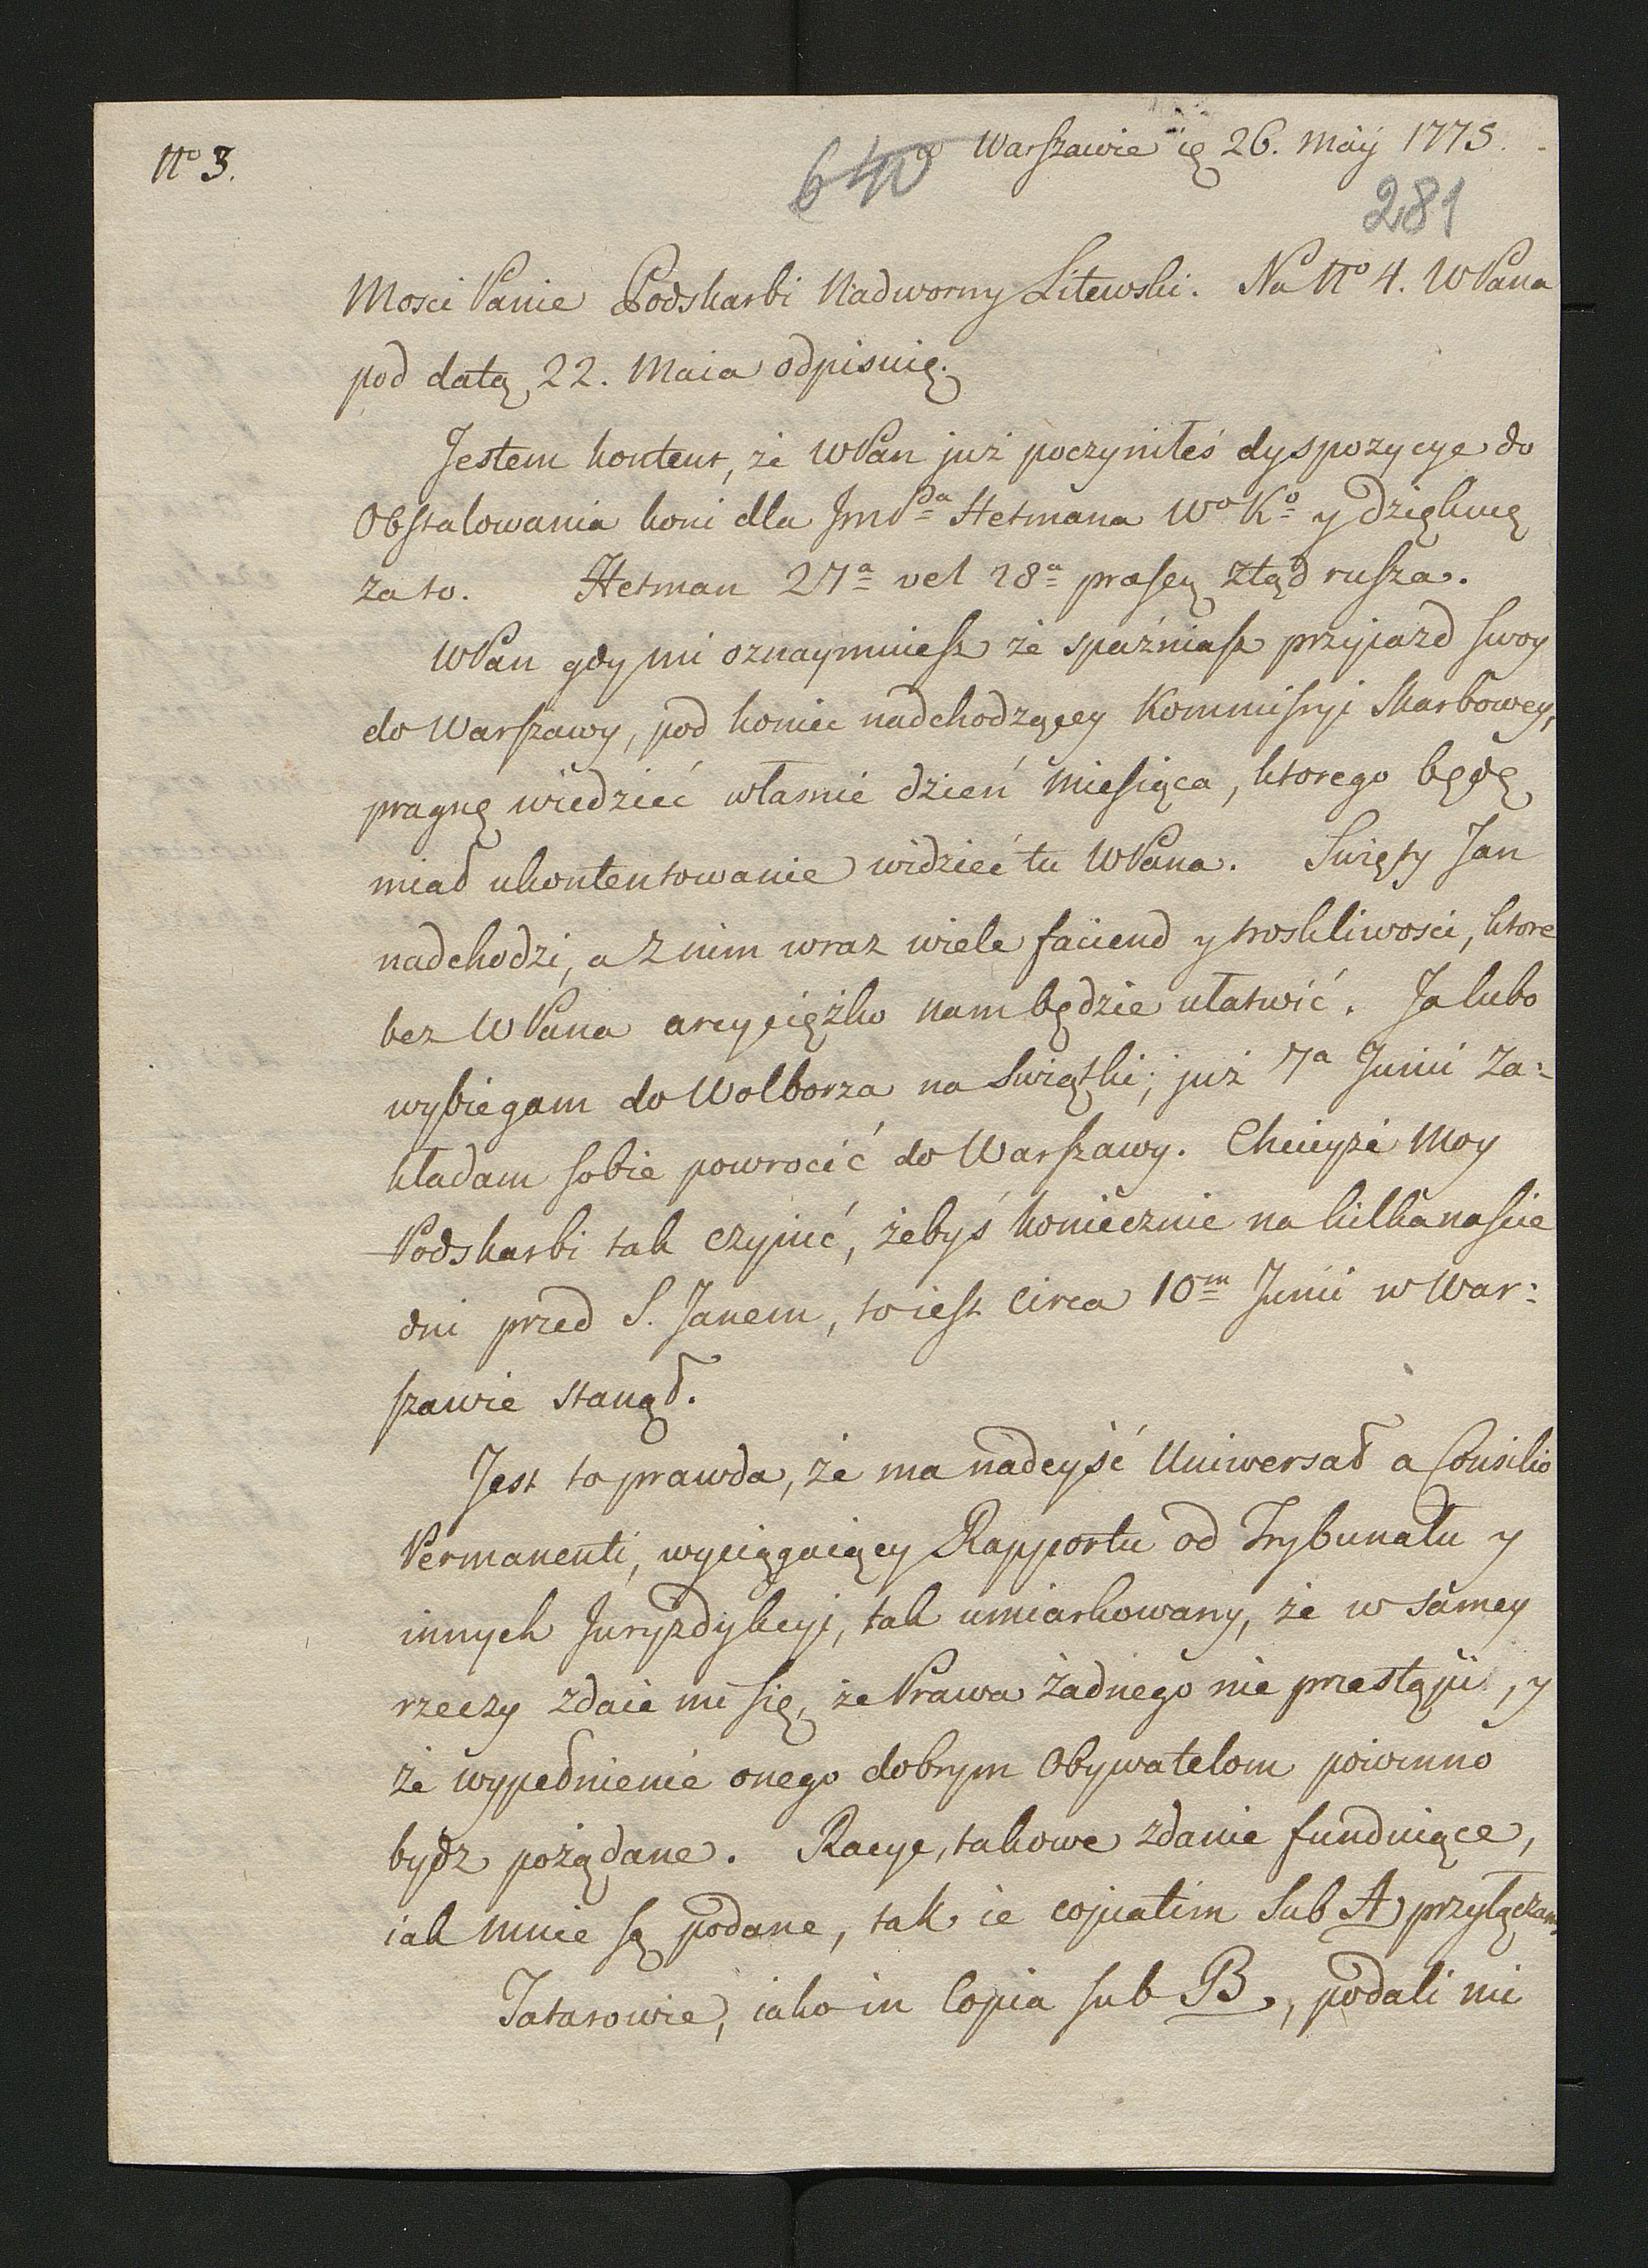 No 3.
w Warszawie ię 26. Maij 1775.
640
281
Mosci Panie Podskarbi Nadworny Litewski. Na No 4. WPana
pod datą 22. Maia odpisuię.
Jestem kontent, że WPan już poczyniłeś dyspozycye do
Obstalowania koni dla JmPda Hetmana Wo Ko y dziękuię
za to. Hetman 27a vel 28a præsen ztąd rusza.
WPan gdy mi oznaymuiesz że spaźniasz przyjazd swoy
do Warszawy, pod koniec nadchodzącey Kommissyi Skarbowey,
pragnę wiedzieć właśnie dzień miesiąca, ktorego będę
miał ukontentowanie widzieć tu WPana. Swięty Jan
nadchodzi, a z nim wraz wiele faciend y troskliwosci, ktore
bez WPana arcyciężko nam będzie ułatwić. Ja lubo
wybiegam do Wolborza na Swiątki; już 7a Junii Za:
kładam sobie powrocić do Warszawy. Chcieyże Moy
Podskarbi tak czynić, żebyś koniecznie na kilkanascie
dni przed S. Janem, to iest circa 10m Junii w War:
szawie stanął.
Jest to prawda, że ma nadeyść Uniwersał a Consilio
Permanenti, wyciągaiący Rapportu od Trybunału y
innych Juryzdykcyi, tak umiarkowany, że w samey
rzeczy zdaie mi się, że Prawa żadnego nie przestąpił, y
że wypełnienie onego dobrym Obywatelom powinno
bydz pożądane. Racye, takowe zdanie funduiące,
iak mnie są podane, tak ie copiatim Sub A przyłączam
Tatarowie, iako in Copia sub B, podali mi